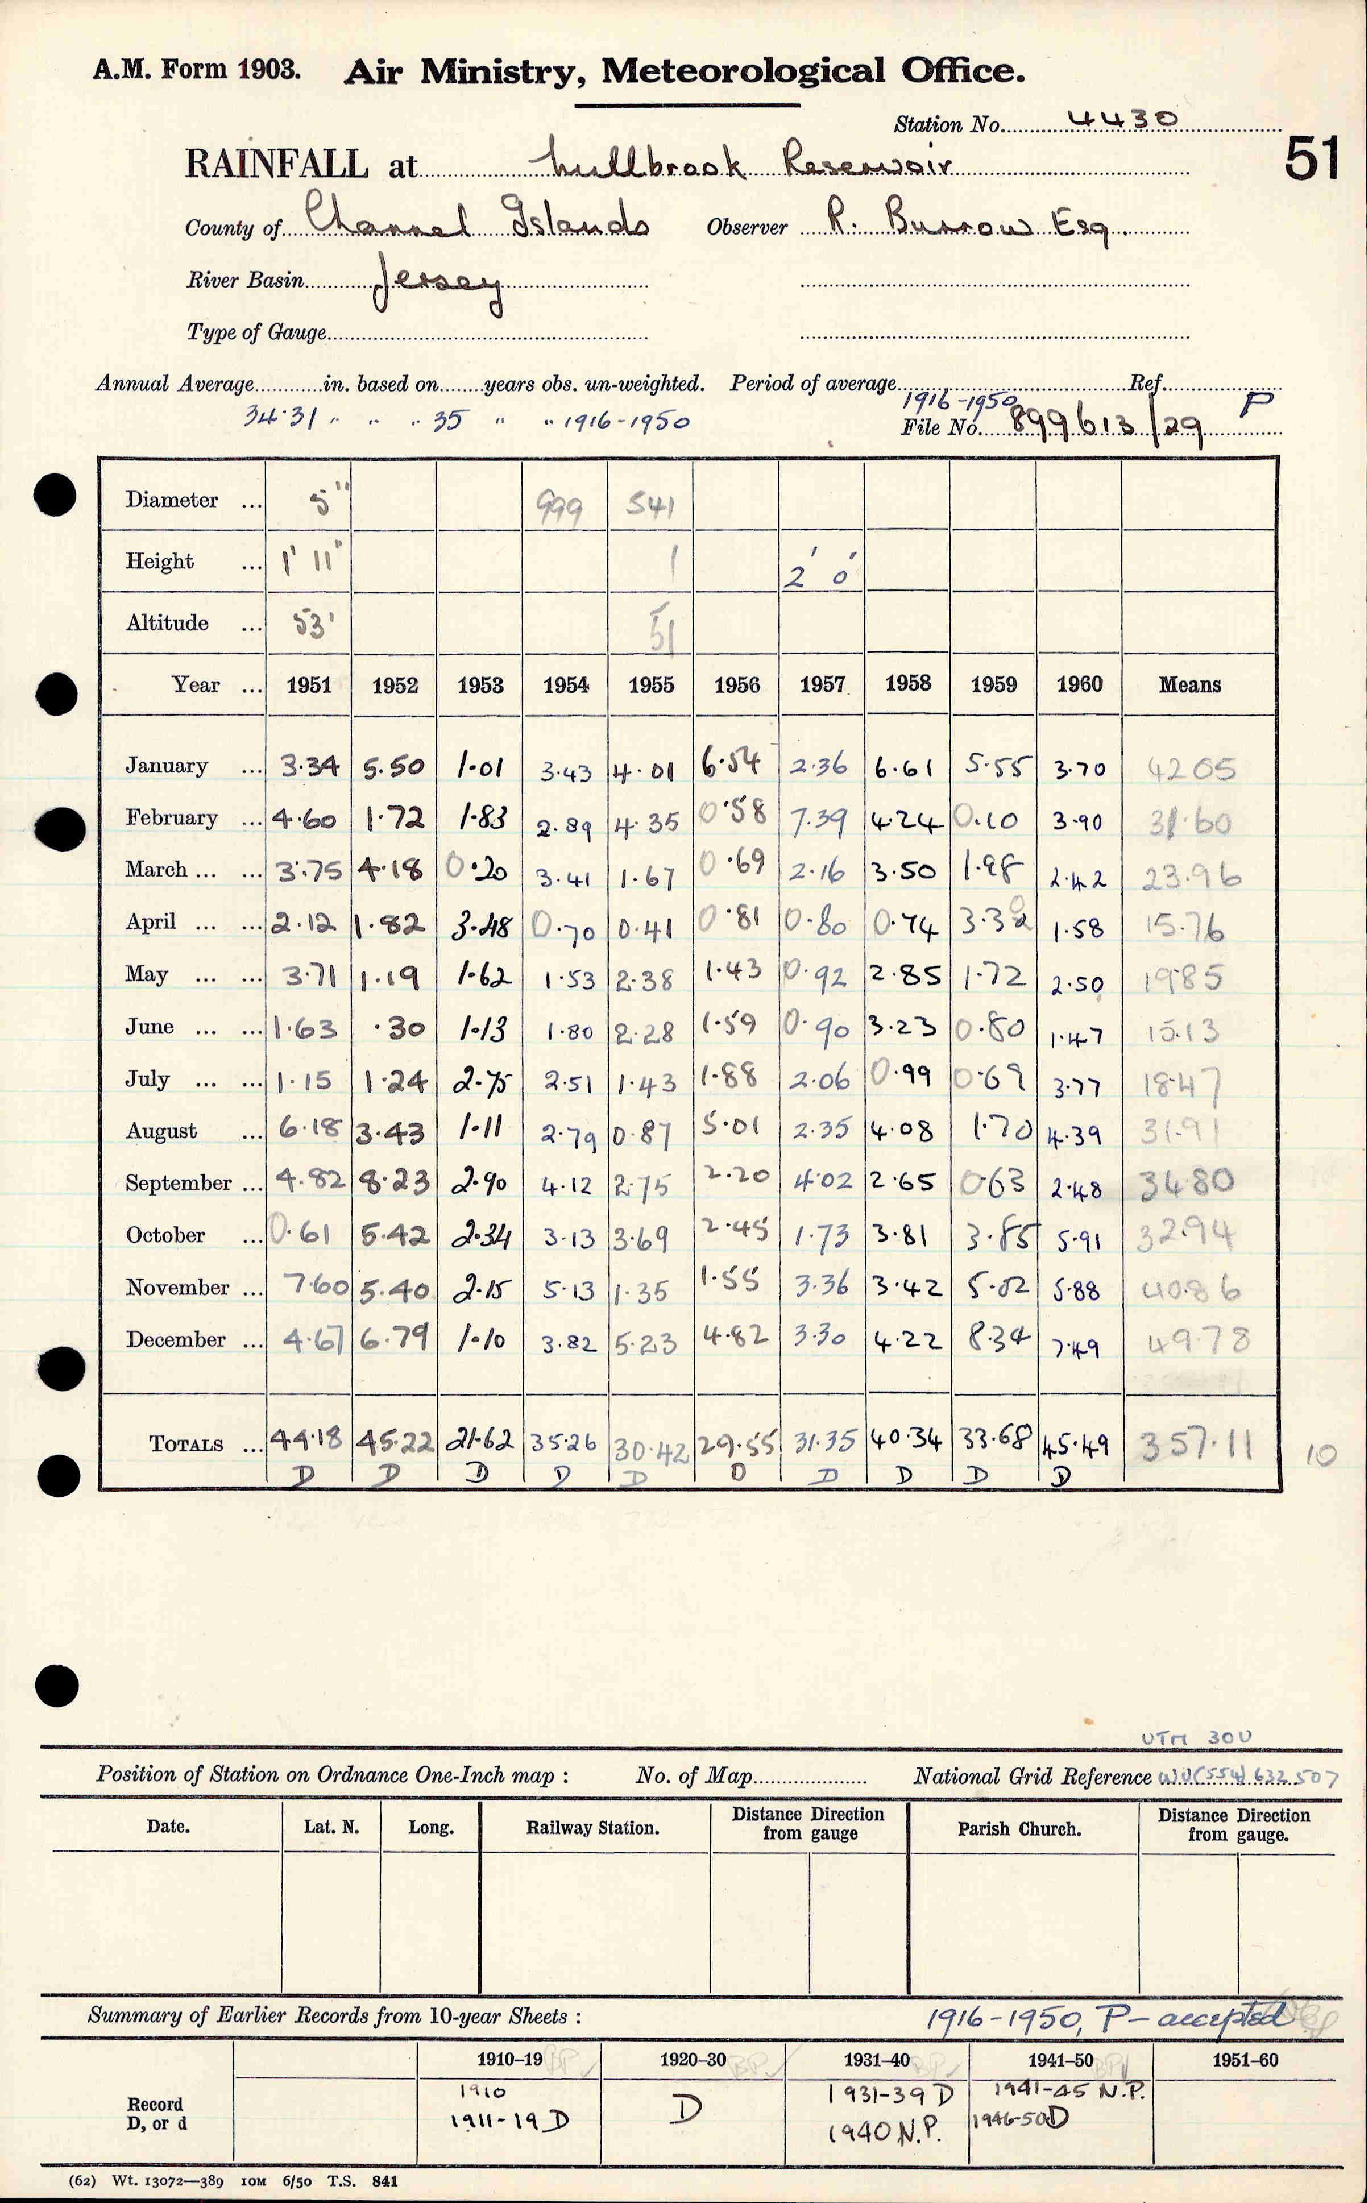 A.M. Form 1903. Air Ministry, Meteorological Office.
Station No. 4430
RAINFALL at Millbrook Reservoir
51
County of Channel Islands Observer R. Burrow Esq.
River Basin Jersey
Type of Gauge
Annual Average in. based on years obs. un-weighted. Period of average 1916-1950 Ref. P
34.31 " " " 35 " " 1916-1950 File No. 899613/29
Diameter ... 5" 999 541
Height ... 1' 11" 1 2' 0'
Altitude ... 53' 51
Year ... 1951 1952 1953 1954 1955 1956 1957 1958 1959 1960 Means
January ... 3.34 5.50 1.01 3.43 4.01 6.54 2.36 6.61 5.55 3.70 42.05
February ... 4.60 1.72 1.83 2.89 4.35 0.58 7.39 4.24 0.10 3.90 31.60
March ... ... 3.75 4.18 0.20 3.41 1.67 0.69 2.16 3.50 1.98 2.42 23.96
April ... ... 2.12 1.82 3.48 0.70 0.41 0.81 0.80 0.74 3.30 1.58 15.76
May ... ... 3.71 1.19 1.62 1.53 2.38 1.43 0.92 2.85 1.72 2.50 19.85
June ... ... 1.63 .30 1.13 1.80 2.28 1.59 0.90 3.23 0.80 1.47 15.13
July ... ... 1.15 1.24 2.75 2.51 1.43 1.88 2.06 0.99 0.69 3.77 18.47
August ... 6.18 3.43 1.11 2.79 0.87 5.01 2.35 4.08 1.70 4.39 31.91
September ... 4.82 8.23 2.90 4.12 2.75 2.20 4.02 2.65 0.63 2.48 34.80
October ... 0.61 5.42 2.34 3.13 3.69 2.45 1.73 3.81 3.85 5.91 32.94
November ... 7.60 5.40 2.15 5.13 1.35 1.55 3.36 3.42 5.02 5.88 40.86
December ... 4.67 6.79 1.10 3.82 5.23 4.82 3.30 4.22 8.34 7.49 49.78
TOTALS ... 44.18 45.22 21.62 35.26 30.42 29.55 31.35 40.34 33.68 45.49 357.11 10
D D D D D D D D D D
UTM 30U
Position of Station on Ordnance One-Inch map : No. of Map National Grid Reference WV(554) 632 507
Date. Lat. N. Long. Railway Station. Distance Direction from gauge Parish Church. Distance Direction from gauge.
Summary of Earlier Records from 10-year Sheets : 1916-1950, P - accepted
1910–19 1920–30 1931–40 1941–50 1951–60
Record D, or d 1910 D 1931-39 D 1941-45 N.P.
1911-19 D 1940 N.P. 1946-50 D
(62) Wt. 13072—389 10M 6/50 T.S. 841